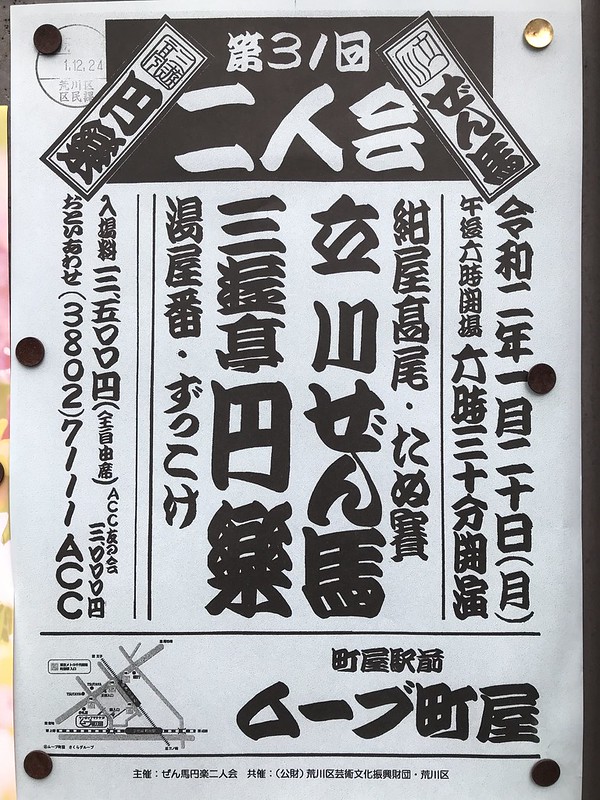 第31回
二人会
ぜん馬
円楽
1.12.24
荒川区
区民課
令和二年一月二十日(月)
午後六時開場 六時三十分開演
紺屋高尾・たぬ賽
立川ぜん馬
三遊亭円楽
湯屋番・ずっこけ
入場料 三、五〇〇円(全自由席) ACC友の会 三、〇〇〇円
おといあわせ(3802)7111ACC
町屋駅前
ムーブ町屋
主催：ぜん馬円楽二人会 共催：(公財)荒川区芸術文化振興財団・荒川区